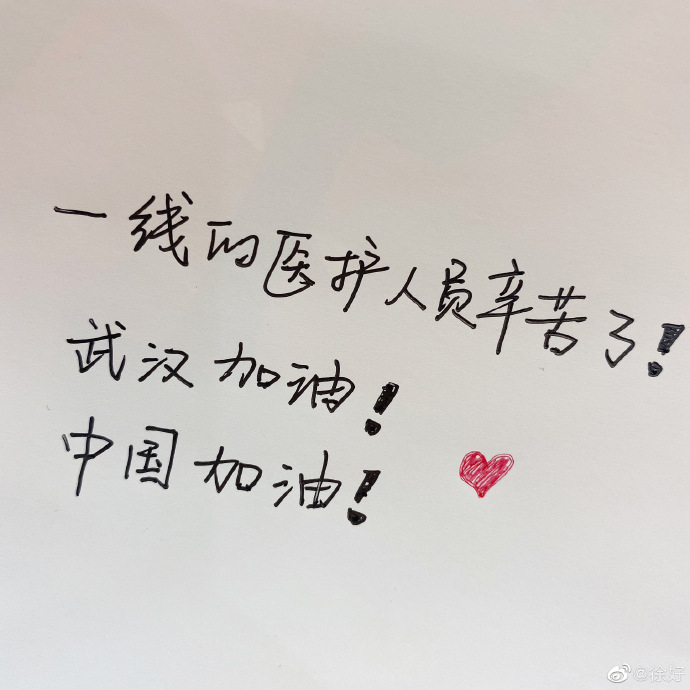 一线的医护人员辛苦了!
武汉加油!
中国加油!
@徐好